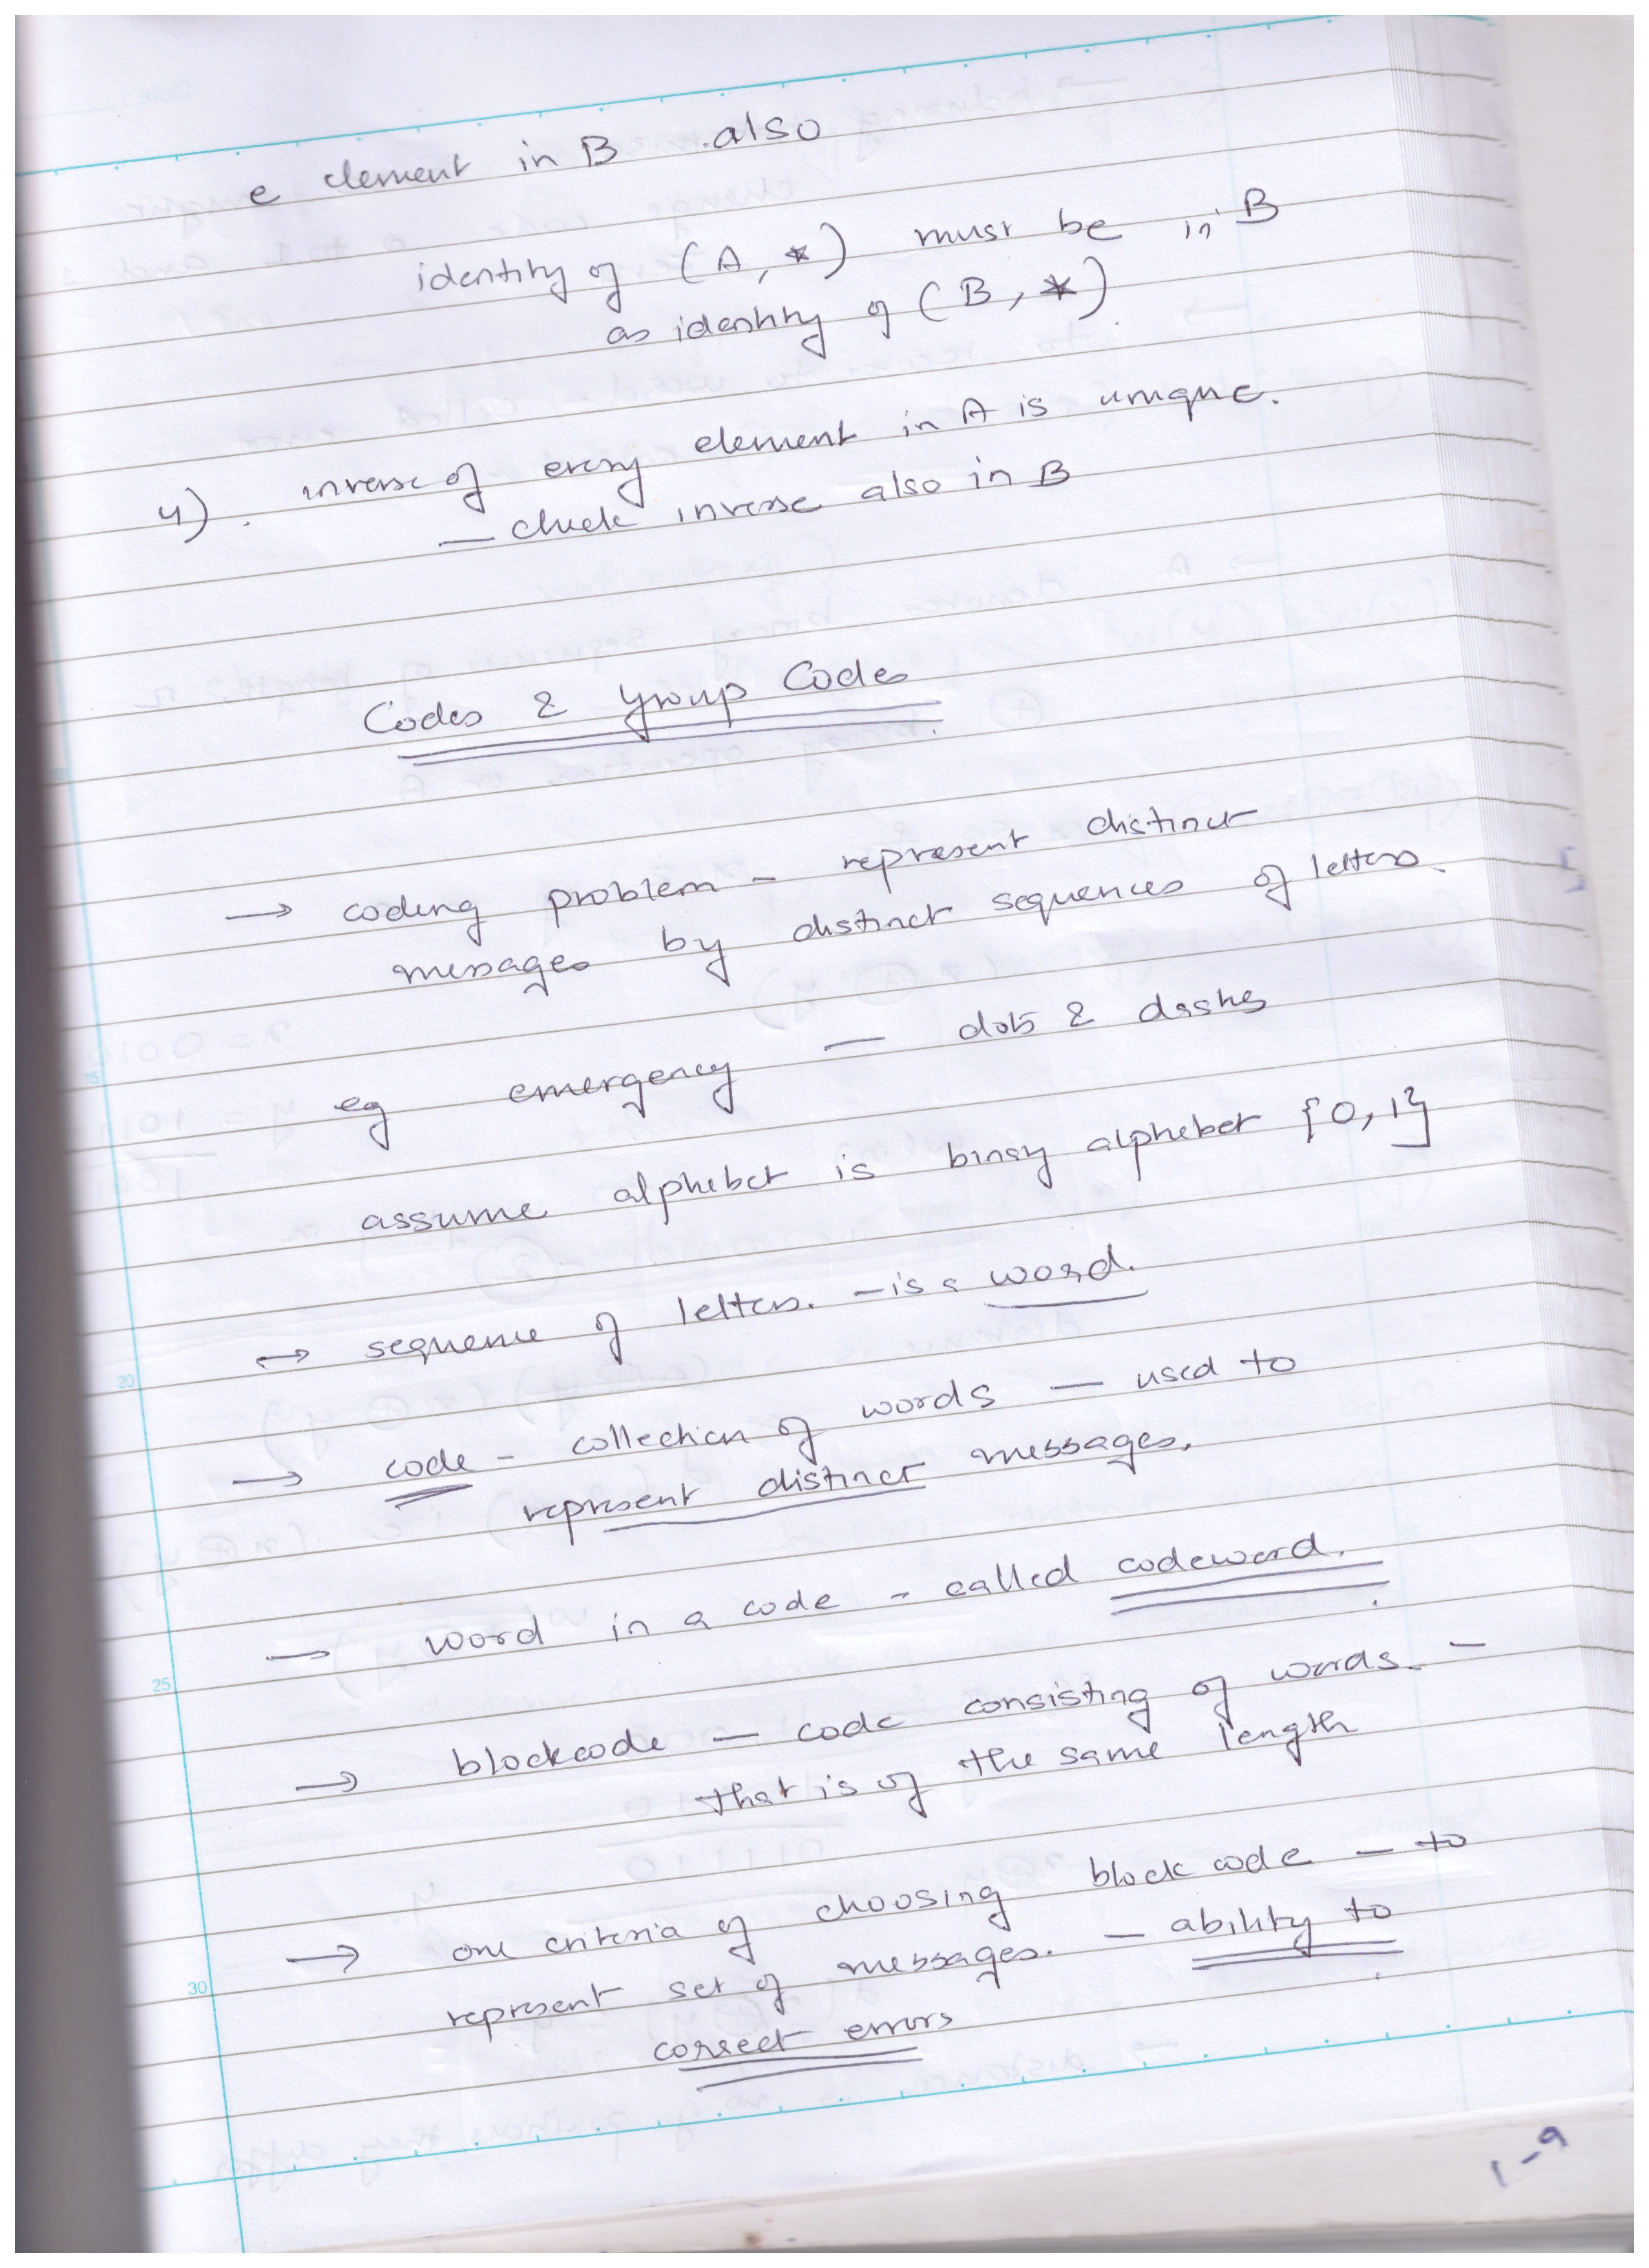 e element in B also
identity of (A, *) must be in B
as identity of (B, *)
4). inverse of every element in A is unique.
— check inverse also in B
Codes & Group Codes
→ coding problem - represent distinct
messages by distinct sequences of letters.
eg emergency — dots & dashes
assume alphabet is binary alphabet {0, 1}
→ sequence of letters. - is a word.
→ code - collection of words — used to
represent distinct messages.
→ word in a code - called codeword.
→ blockcode — code consisting of words -
that is of the same length
→ one criteria of choosing block code — to
represent set of messages. — ability to
correct errors
20
25
30
1-9